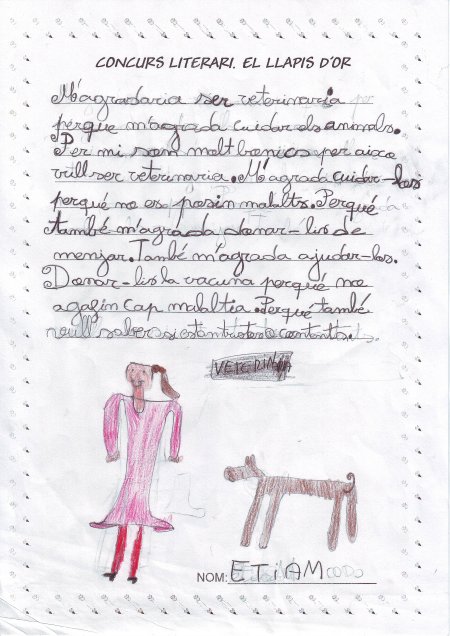 CONCURS LITERARI. EL LLAPIS D'OR
M'agradaria ser veterinaria
perque m'agrada cuidar els animals.
Per mi som molt bonics per aixo
vull ser veterinaria. M'agrada cuidar-los
perqué no es posin malalts. Perqué
també m'agrada donar-lis de
menjar. També m'agrada ajudar-los.
Donar-lis la vacuna perqué no
agafin cap malaltia. Perqué també
vull saber si estan tristes o contents.
NOM: ETIAM CODO